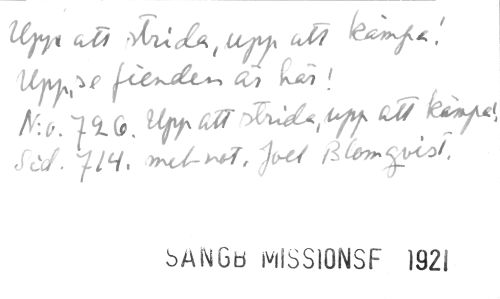 Upp att strida, upp att kämpa!
Upp, se fienden är här!
N:o. 726. Upp att strida, upp att kämpa!
Sid. 714. mel-not. Joel Blomqvist.
SANGB MISSIONSF 1921